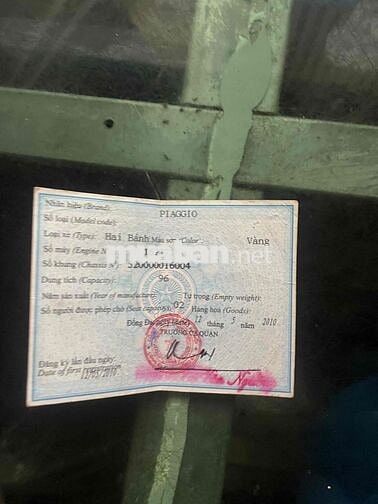 Nhãn hiệu (Brand): PIAGGIO
Số loại (Model code):
Loại xe (Type): Hai Bánh Màu sơn (Color): Vàng
Số máy (Engine N
Số khung (Chassis N°): 320000016004
Dung tích (Capacity): 96
Năm sản xuất (Year of manufacture): Tự trọng (Empty weight):
Số người được phép chở (Seat capacity): 02 Hàng hóa (Goods):
Đống Đa, ngày (date) 12 tháng 5 năm 2010
TRƯỞNG CA QUẬN
Đăng ký lần đầu ngày:
Date of first registration 12/05/2010